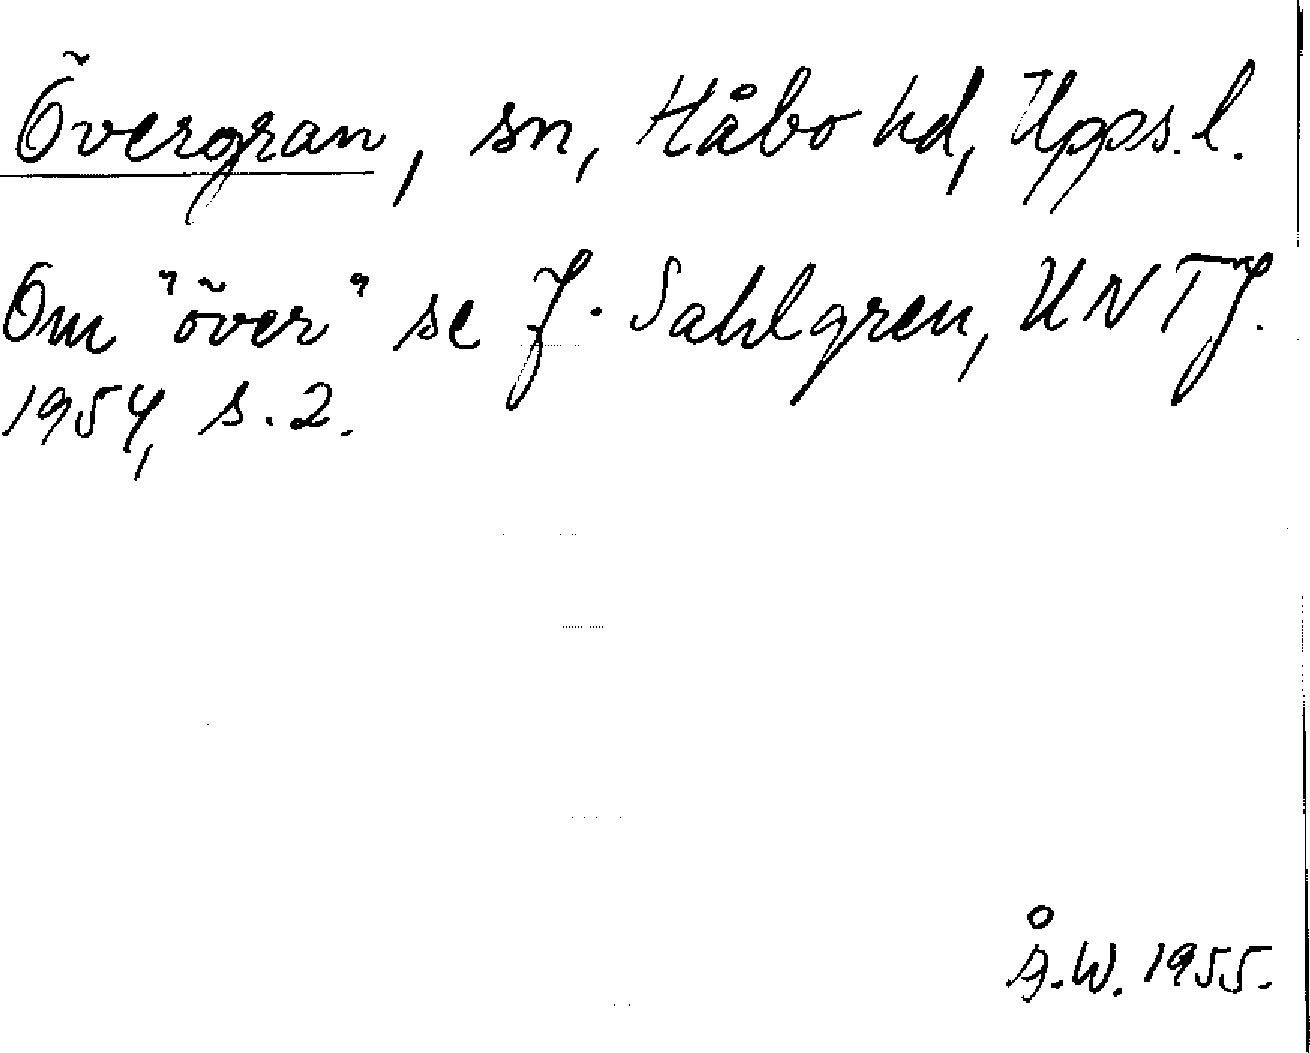 Övergran, sn, Håbo hd, Upps.l.
Om "över" se J. Sahlgren, UNTJ.
1954, s. 2.
Å.W. 1955.